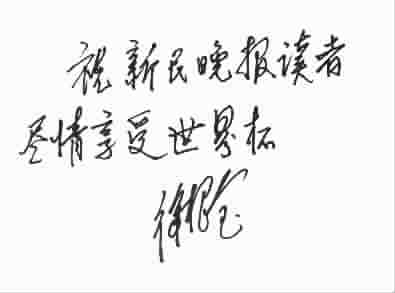 祝新民晚报读者
尽情享受世界杯
徐根宝